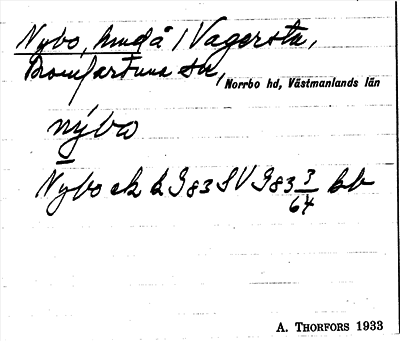 Nybo, hmd å 1 Vagersta,
Romfartuna sn,
Norrbo hd, Västmanlands län
nybo
Nybo ek k G 83 SV G 83 3/64 bb
A. THORFORS 1933